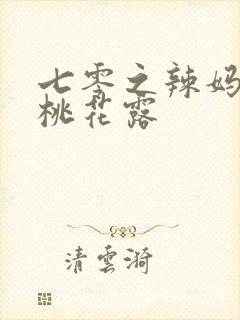 七零之辣妈
桃花露
清雲漪